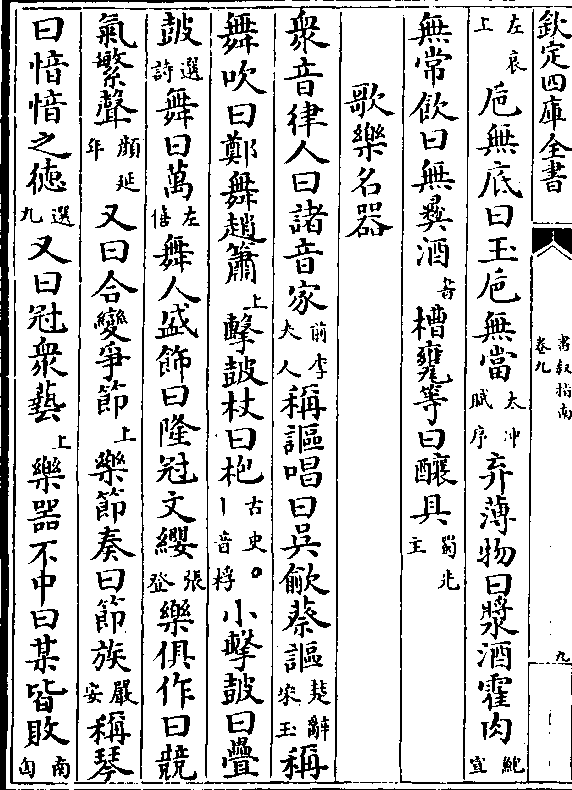 欽定四庫全書
書叙指南
卷九
九
上左哀巵無底曰玉巵無當太冲賦序弃薄物曰漿酒霍肉鮑宣
無常飲曰無彛酒音槽甕等曰釀具蜀先主
歌樂名器
衆音律人曰諸音家前李夫人稱謳唱曰吳歈蔡謳楚辭宋玉稱
舞吹曰鄭舞趙簫上擊鼓杖曰枹古史丨音桴小擊鼓曰疊
鼓選詩舞曰萬左僖舞人盛飾曰隆冠文纓張登樂俱作曰競
氣繁聲顏延年又曰合變爭節上樂節奏曰節族嚴安稱琴
曰愔愔之徳選九又曰冠衆藝上樂器不中曰某皆敗南匈